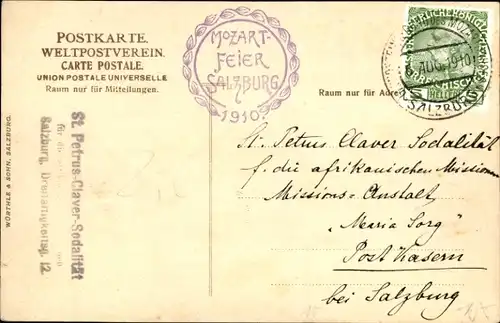 POSTKARTE.
WELTPOSTVEREIN.
CARTE POSTALE.
UNION POSTALE UNIVERSELLE
Raum nur für Mitteilungen.
MOZART-
FEIER
SALZBURG
1910
Raum nur für
AUG. 1910
SALZBURG
HELLER
St. Petrus Claver Sodalität
f. die afrikanischen Missionen
Missions-Anstalt
„Maria Sorg"
Post Kasern
bei Salzburg
St. Petrus-Claver-Sodalität
für die
Salzburg, Dreifaltigkeitsg. 12.
WÜRTHLE & SOHN, SALZBURG.